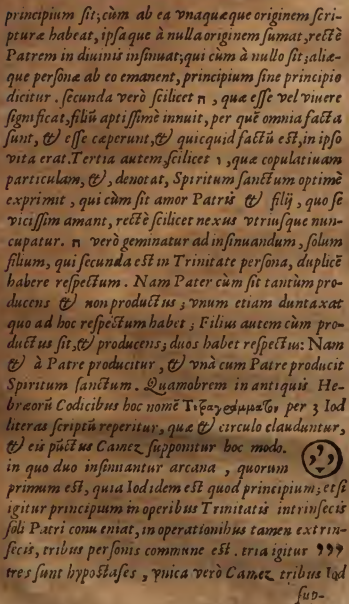 principium ſit; cùm ab ea vnaquæque originem ſcri-
pturæ habeat, ipſaque à nulla originem ſumat, rectè
Patrem in diuinis inſinuat; qui cùm à nullo ſit; aliæ-
que perſonæ ab eo emanent, principium ſine principio
dicitur. ſecunda verò ſcilicet ה, quæ eſſe vel viuere
ſignificat, filiũ aptiſſimè innuit, per quẽ omnia facta
ſunt, & eſſe cæperunt, & quicquid factũ eſt, in ipſo
vita erat. Tertia autem, ſcilicet ו, quæ copulatiuam
particulam, &, denotat, Spiritum ſanctum optimè
exprimit, qui cùm ſit amor Patris & filij, quo ſe
viciſſim amant, rectè ſcilicet nexus vtriuſque nun-
cupatur. ה verò geminatur ad inſinuandum, ſolum
filium, qui ſecunda eſt in Trinitate perſona, duplicẽ
habere reſpectum. Nam Pater cùm ſit tantùm pro-
ducens & non productus; vnum etiam duntaxat
quo ad hoc reſpectum habet; Filius autem cùm pro-
ductus ſit, & producens; duos habet reſpectus: Nam
& à Patre producitur, & vnà cum Patre producit
Spiritum ſanctum. Quamobrem in antiquis He-
bræorũ Codicibus hoc nomẽ Τετραγράμματον per 3 Iod
literas ſcriptũ reperitur, quæ & circulo clauduntur,
& eis pũctus Camez ſupponitur hoc modo.
in quo duo inſinuantur arcana, quorum
primum eſt, quia Iod idem eſt quod principium; etſi
igitur principium in operibus Trinitatis intrinſecis
ſoli Patri conueniat, in operationibus tamen extrin-
ſecis, tribus perſonis commune eſt. tria igitur ״׳
tres ſunt hypoſtaſes, vnica verò Camez tribus Iod
ſup-